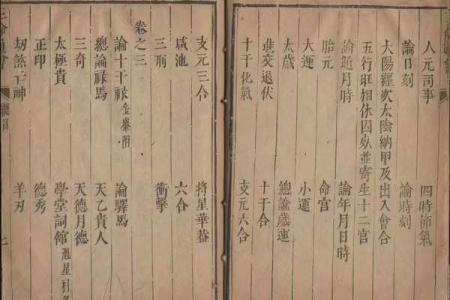 人元司事 四時節氣
論日刻 論時刻
太陽躔次太陰納甲及出入會合
五行旺相休囚死並寄生十二宮
論遁月時 論年月日時
胎元 命宮
大運 小運
太歲 總論歲運
進交退伏 十干合
十干化氣 支元六合
支元三合 將星華蓋
咸池 六合
三刑 衝擊
卷之三
論十干祿 論驛馬
總論祿馬 天乙貴人
三奇 天德月德
太極貴 學堂詞館
正印 德秀
劫煞亡神 羊刃